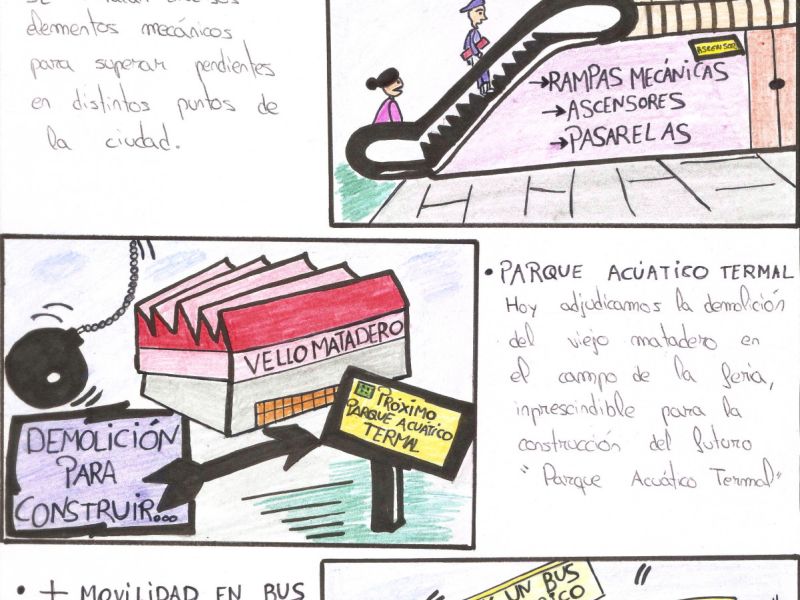 elementos mecánicos
para superar pendientes
en distintos puntos de
la ciudad.
ASCENSOR
→RAMPAS MECÁNICAS
→ASCENSORES
→PASARELAS
VELLO MATADERO
PRÓXIMO
PARQUE ACUATICO
TERMAL
DEMOLICIÓN
PARA
CONSTRUIR...
• PARQUE ACÚATICO TERMAL
Hoy adjudicamos la demolición
del viejo matadero en
el campo de la feria,
inprescindible para la
construcción del futuro
"Parque Acuático Termal"
• + MOVILIDAD EN BUS
UN BUS